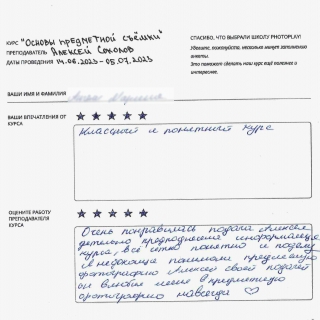 КУРС "ОСНОВЫ ПРЕДМЕТНОЙ СЪЁМКИ"
ПРЕПОДАВАТЕЛЬ АЛЕКСЕЙ СОКОЛОВ
ДАТЫ ПРОВЕДЕНИЯ 14.06.2023 - 05.07.2023
СПАСИБО, ЧТО ВЫБРАЛИ ШКОЛУ PHOTOPLAY!
Уделите, пожалуйста, несколько минут заполнению
анкеты.
Это поможет сделать наш курс ещё полезнее и
интереснее.
ВАШИ ИМЯ И ФАМИЛИЯ
ВАШИ ВПЕЧАТЛЕНИЯ ОТ
КУРСА
Классный и понятный курс
ОЦЕНИТЕ РАБОТУ
ПРЕПОДАВАТЕЛЯ
КУРСА
Очень понравилась подача Алексея
информации
курса, всё четко понятно и
предметную
фотографию Алексей своей подачей
он влюбил меня в предметную
фотографию навсегда